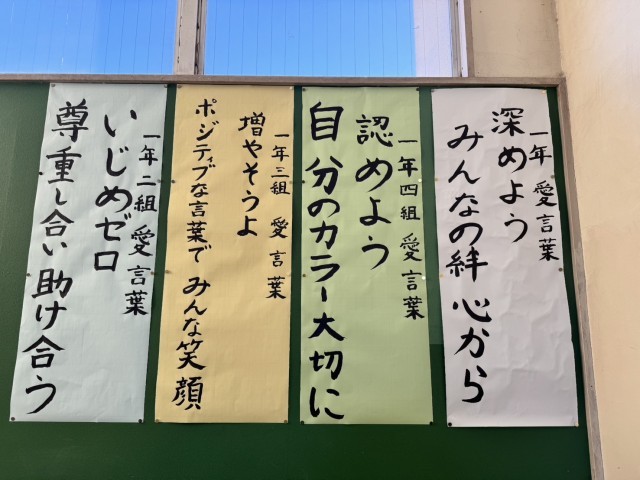 一年 愛言葉
深めよう
みんなの絆 心から
一年四組 愛言葉
認めよう
自分のカラー大切に
一年三組 愛言葉
増やそうよ
ポジティブな言葉で みんな笑顔
一年二組 愛言葉
いじめゼロ
尊重し合い 助け合う